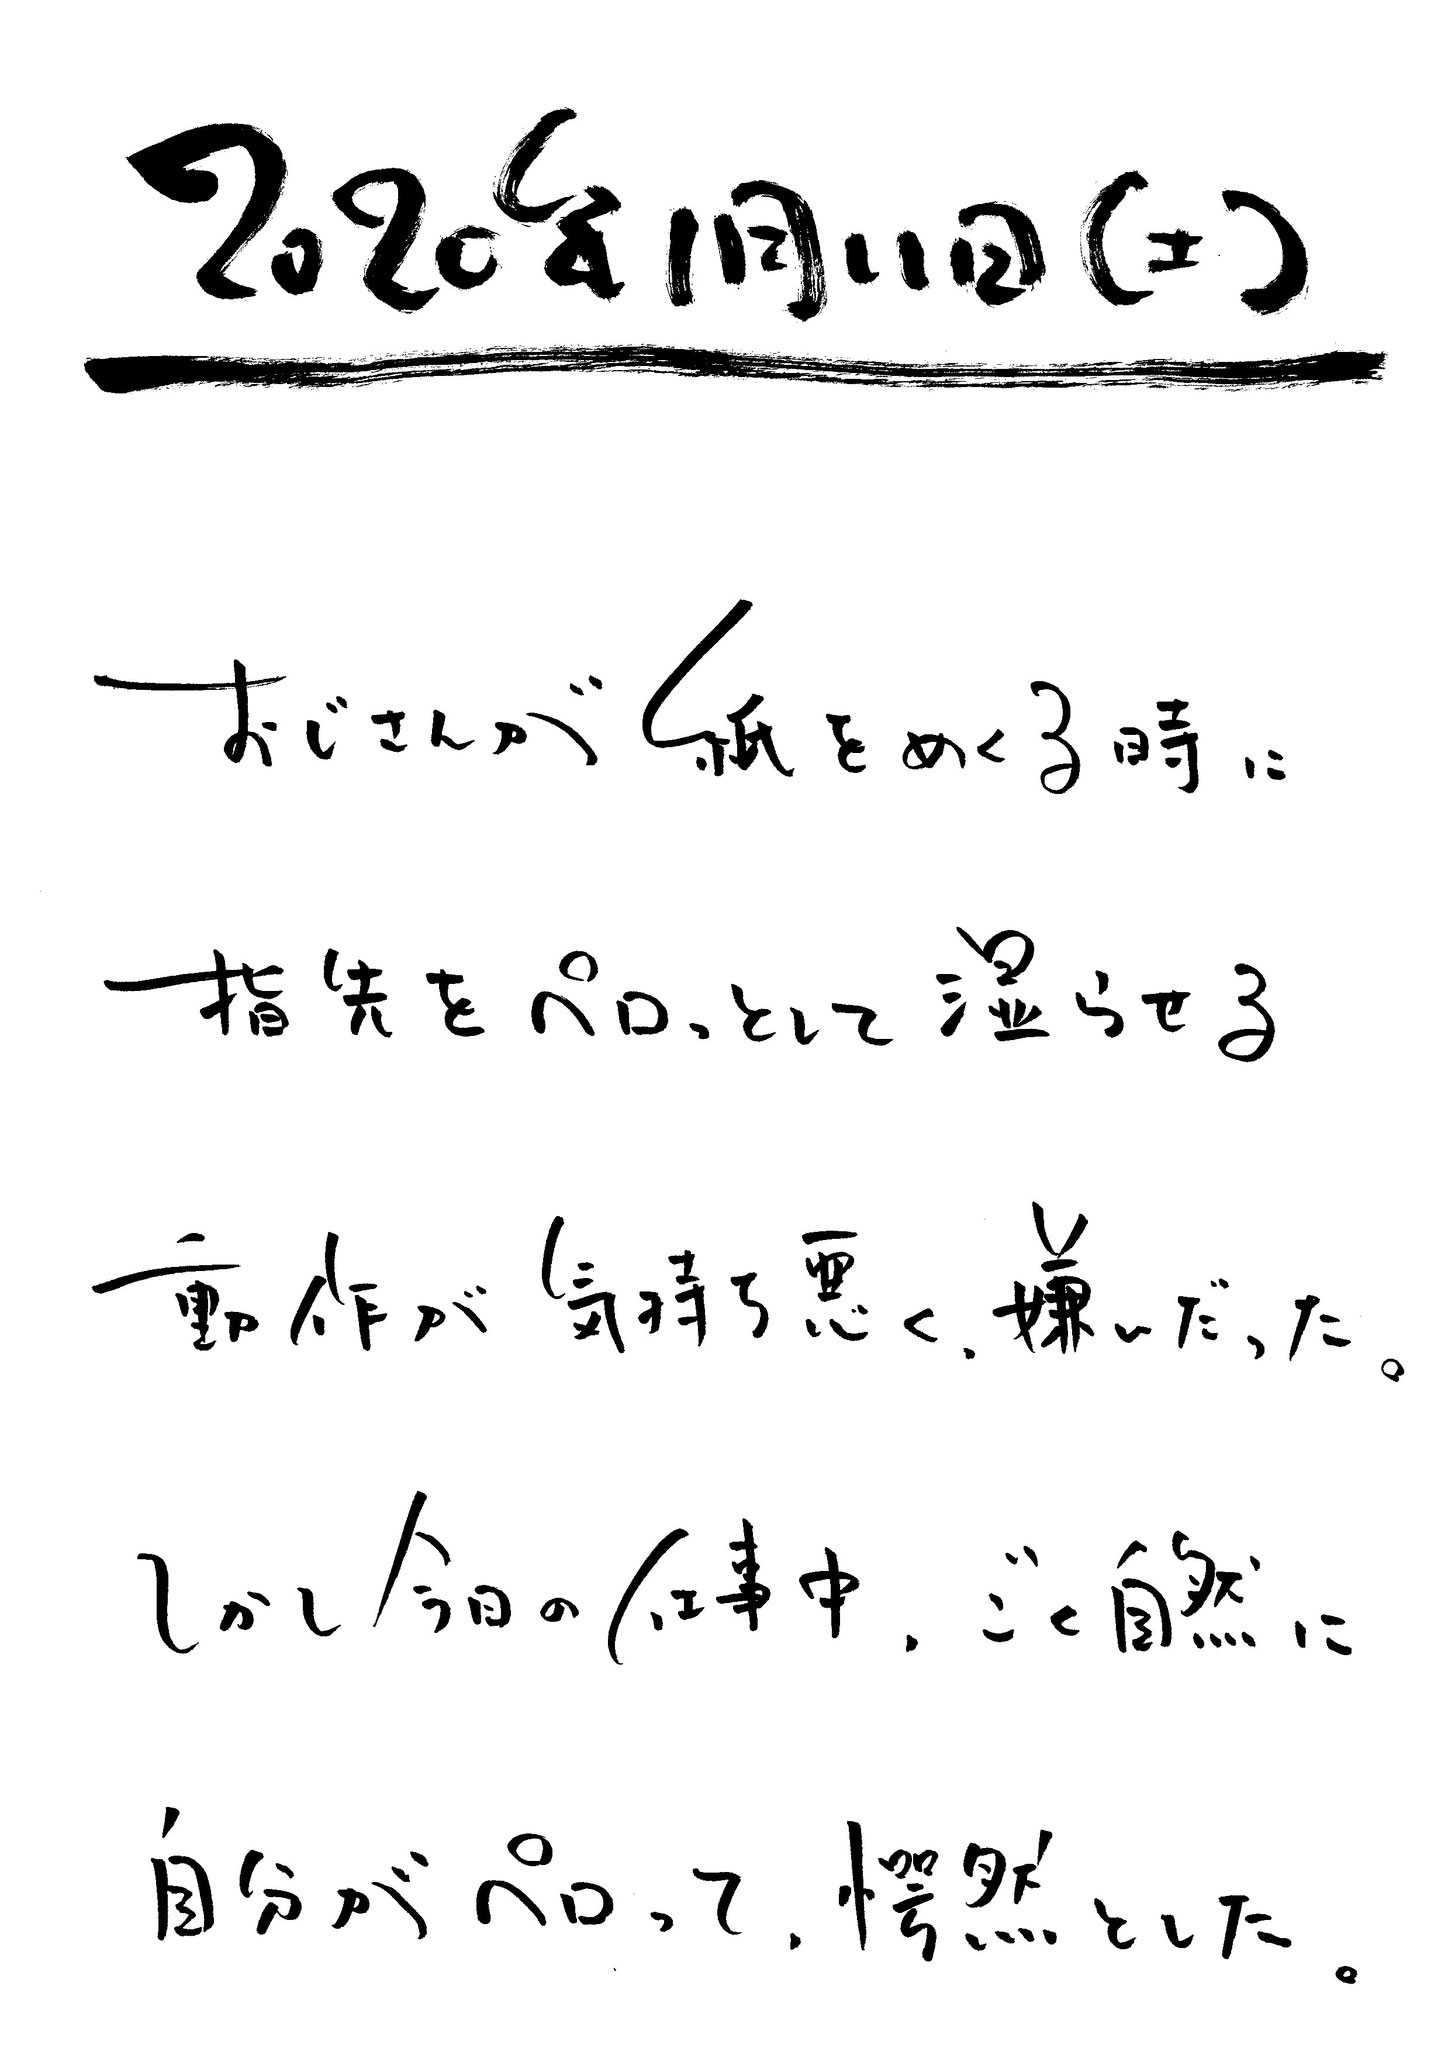 2020年1月11日(土)
おじさんが紙をめくる時に
指先をペロっとして湿らせる
動作が気持ち悪く、嫌いだった。
しかし今日の仕事中、ごく自然に
自分がペロって、愕然とした。